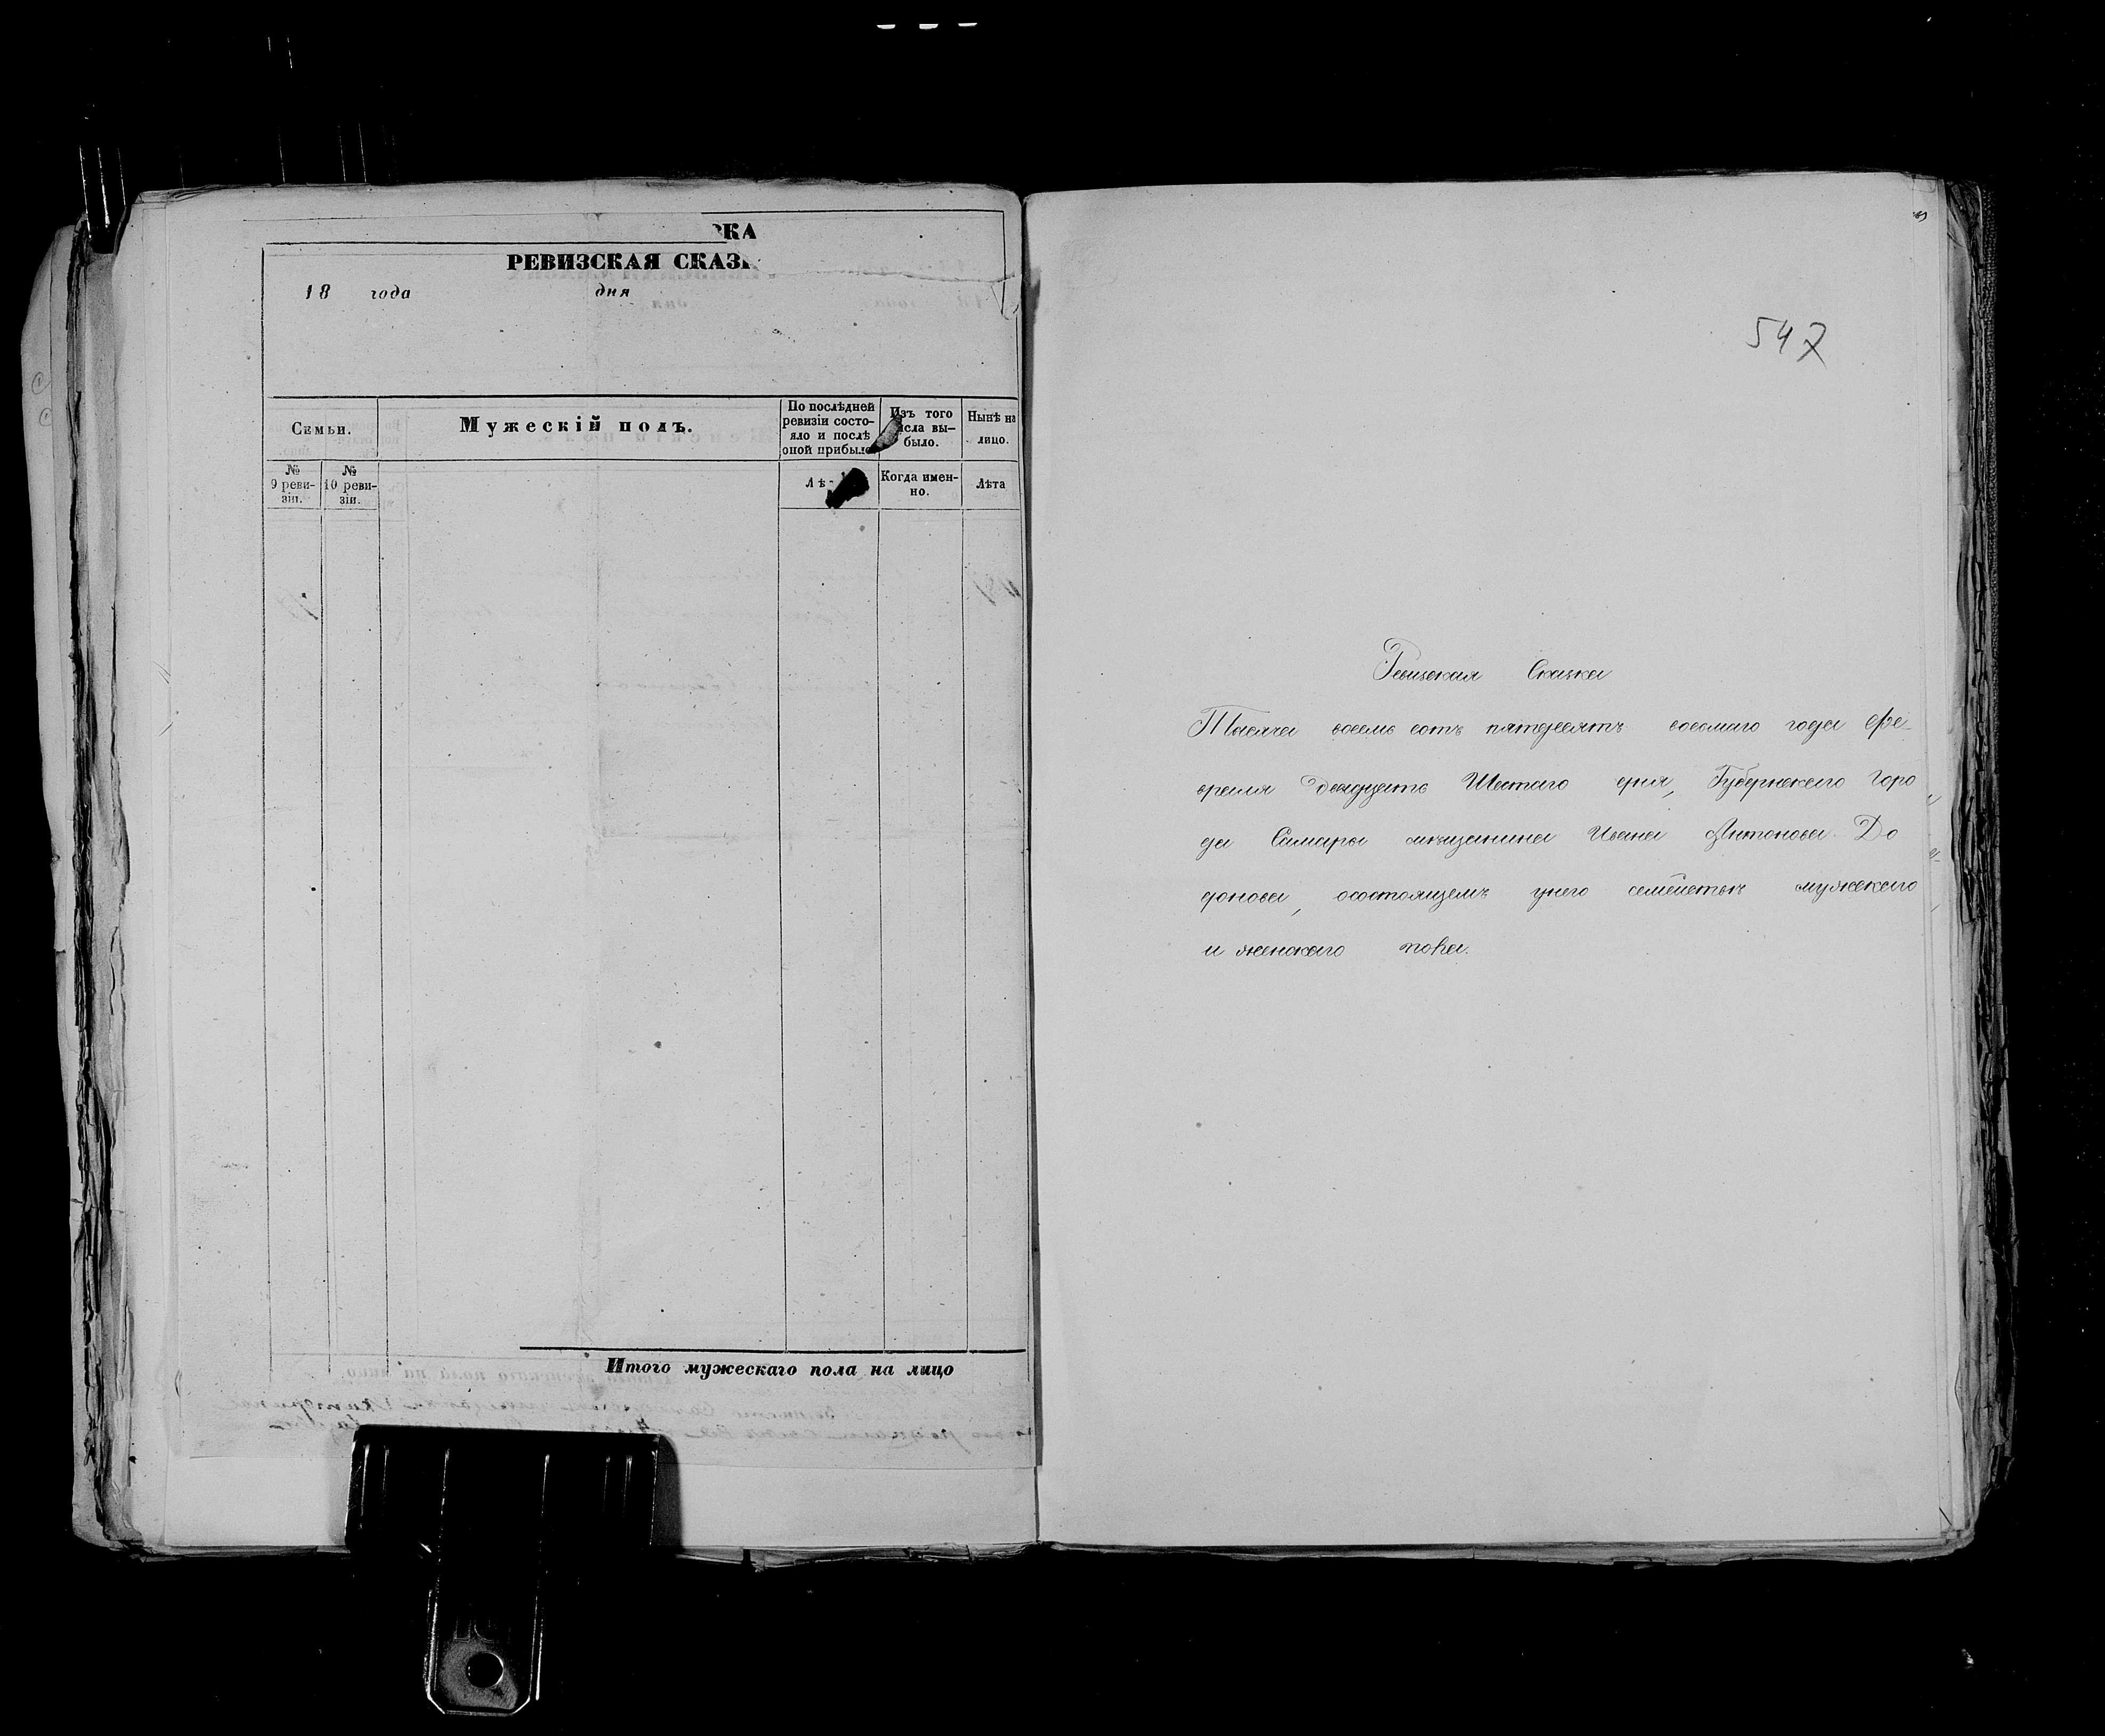 РЕВИЗСКАЯ СКАЗ
18 года дня
Семьи.
Мужескій полъ.
По послѣдней
ревизіи состо-
яло и послѣ
оной прибыло
Изъ того
числа вы-
было.
Нынѣ на
лицо.
№
9 реви-
зіи.
№
10 реви-
зіи.
Лѣ-
Когда имен-
но.
Лѣта
Итого мужескаго пола на лицо
547
Ревизская Сказка
Тысяча восемь сотъ пятдесятъ восьмаго года фе-
враля двадцать Шестаго дня, Губернскаго Горо
да Самары мѣщанина Ивана Антонова До
донова, осостоящемъ унего семействѣ мужскаго
и женскаго пола.